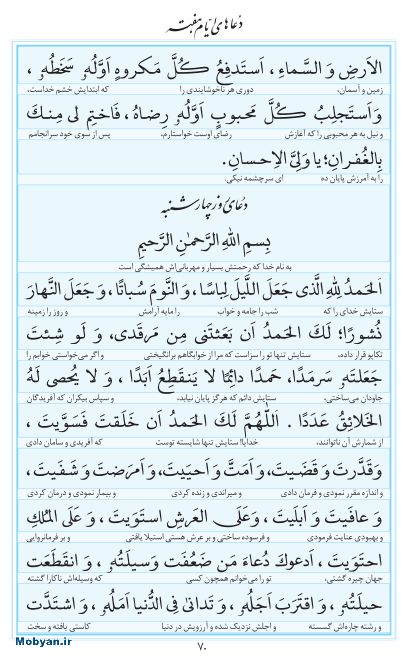 دعاهای ایام هفته
الاَرضِ وَ السَّماءِ، اَستَدفِعُ كُلَّ مَكروهٍ اَوَّلُهُ سَخَطُهُ،
زمین و آسمان، دوری هر ناخوشایندی را که ابتدایش خشم خداست،
وَ اَستَجلِبُ كُلَّ مَحبوبٍ اَوَّلُهُ رِضاهُ، فَاختِم لی مِنكَ
و نیل به هر محبوبی را که آغازش رضای اوست خواستارم، پس از سوی خود سرانجامم
بِالغُفرانِ؛ یا وَلِیَّ الاِحسانِ.
را به آمرزش پایان ده ای سرچشمه نیکی.
دعای روز چهارشنبه
بِسمِ اللهِ الرَّحمٰنِ الرَّحیمِ
به نام خدا که رحمتش بسیار و مهربانی‌اش همیشگی است
اَلحَمدُ لِلّٰهِ الَّذی جَعَلَ اللَّیلَ لِباسًا، وَ النَّومَ سُباتًا، وَ جَعَلَ النَّهارَ
ستایش خدای را که شب را جامه و خواب را مایه آرامش و روز را زمینه
نُشورًا؛ لَكَ الحَمدُ اَن بَعَثتَنی مِن مَرقَدی، وَ لَو شِئتَ
تکاپو قرار داده، ستایش تنها تو را سزاست که مرا از خوابگاهم برانگیختی و اگر می‌خواستی خوابم را
جَعَلتَهُ سَرمَدًا، حَمدًا دائِمًا لا یَنقَطِعُ اَبَدًا، وَ لا یُحصی لَهُ
جاودان می‌ساختی، ستایش دائم که هرگز پایان نیابد، و سپاس بیکران که آفریدگان
الخَلائِقُ عَدَدًا. اَللّٰهُمَّ لَكَ الحَمدُ اَن خَلَقتَ فَسَوَّیتَ،
از شمارش آن ناتوانند، خدایا! ستایش تنها شایسته توست که آفریدی و سامان دادی
وَ قَدَّرتَ وَ قَضَیتَ، وَ اَمَتَّ وَ اَحیَیتَ، وَ اَمرَضتَ وَ شَفَیتَ،
و اندازه مقرر نمودی و فرمان دادی و میراندی و زنده کردی و بیمار نمودی و درمان کردی
وَ عافَیتَ وَ اَبلَیتَ، وَ عَلَی العَرشِ استَوَیتَ، وَ عَلَی المُلكِ
و بهبودی عنایت فرمودی و فرسوده ساختی و بر عرش هستی استیلا یافتی و بر فرمانروایی
احتَوَیتَ، اَدعوكَ دُعاءَ مَن ضَعُفَت وَسیلَتُهُ، وَ انقَطَعَت
جهان چیره گشتی، تو را می‌خوانم همچون کسی که وسیله‌اش ناکارا گشته
حیلَتُهُ، وَ اقتَرَبَ اَجَلُهُ، وَ تَدانیٰ فِی الدُّنیا اَمَلُهُ، وَ اشتَدَّت
و رشته چاره‌اش گسسته و اجلش نزدیک شده و آرزویش در دنیا کاستی یافته و سخت
Mobyan.ir
۷۰